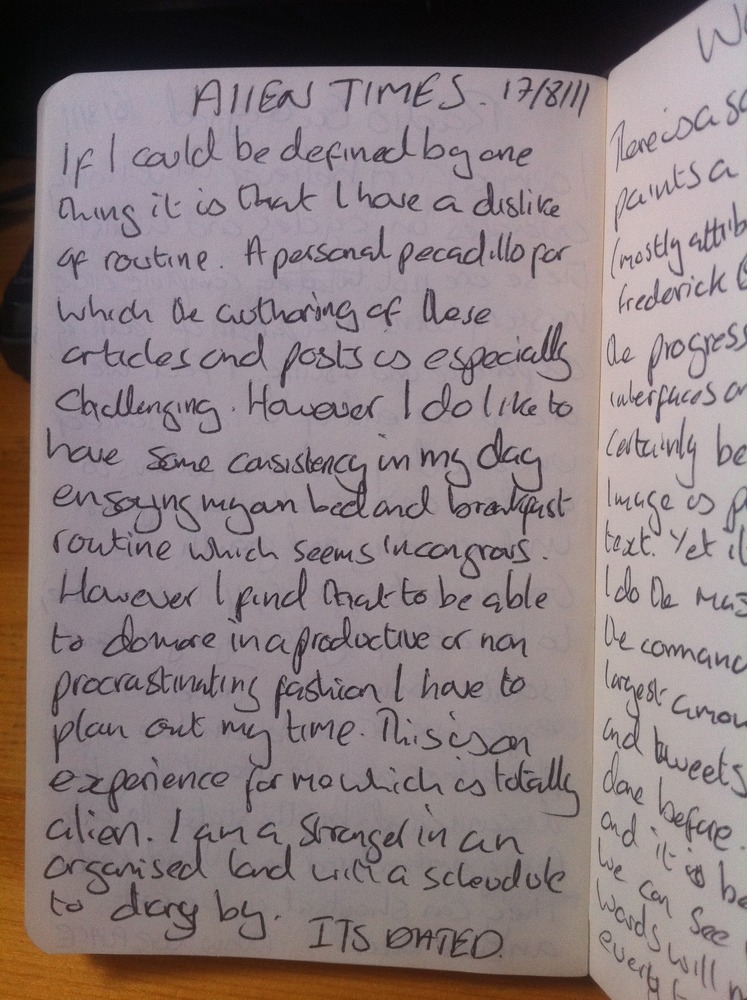 AlIEN TIMES. 17/8/11
If I could be defined by one
thing it is that I have a dislike
of routine. A personal pecadillo for
which the authoring of these
articles and posts is especially
Challenging. However I do like to
have some consistency in my day
enjoying my own bed and breakfast
routine which seems incongrous.
However I find that to be able
to do more in a productive or non
procrastinating fashion I have to
plan out my time. This is an
experience for me which is totally
alien. I am a stranger in an
organised land with a schedule
to diary by.
ITS DATED.
There is a
paints a
(mostly
frederick
the progress
interfaces
Certainly be
Image is
text. Yet
I do the
the
largest
and tweets
done before.
and it is
we can see
words will